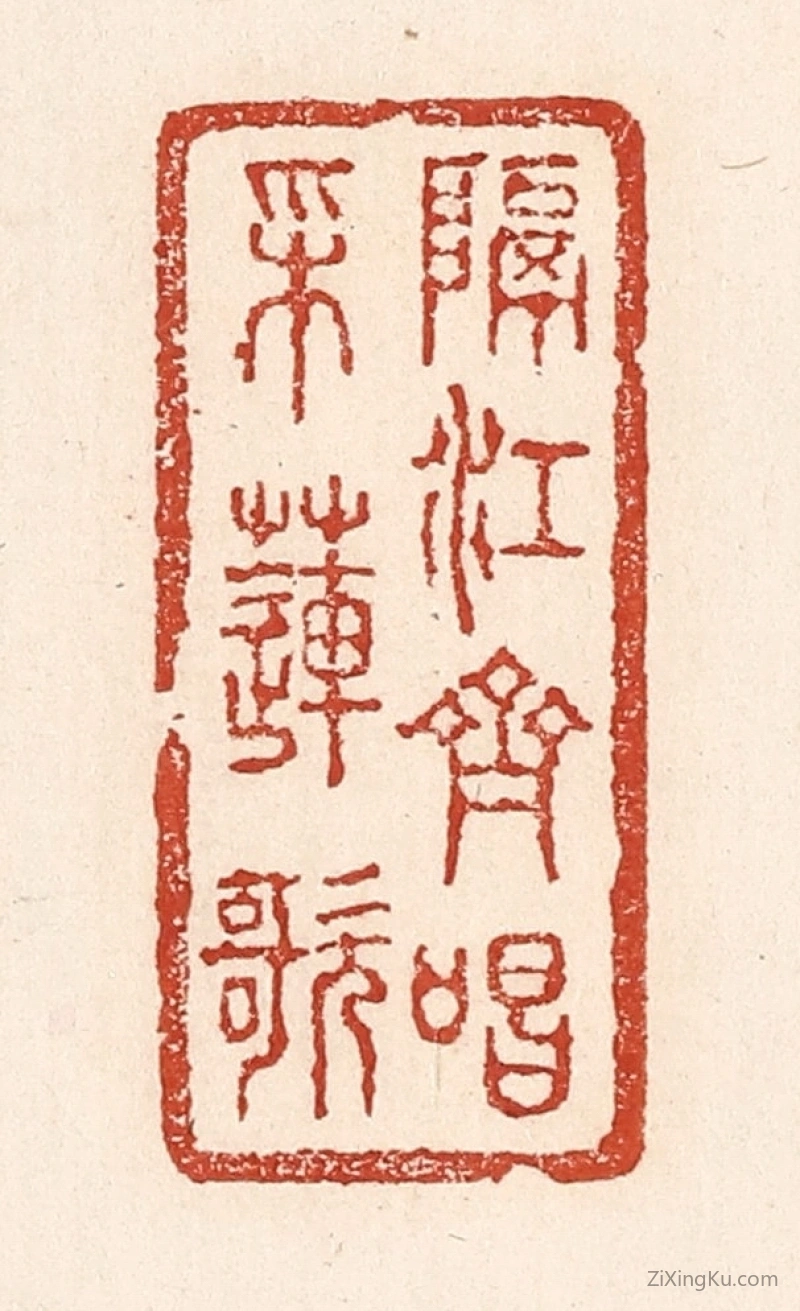 隔江齊唱
采蓮歌
ZiXingKu.com